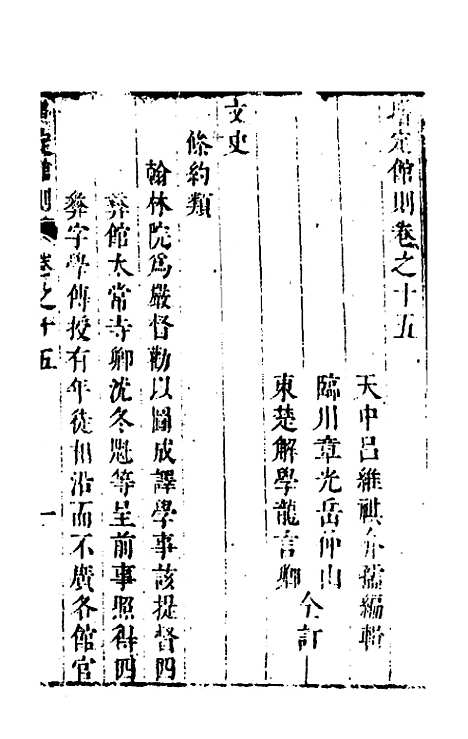 增定館則卷之十五
天中呂維祺介孺編輯
臨川章光岳仲山
東楚解學龍言卿
仝訂
文史
條約類
翰林院爲嚴督勸以圖成譯學事該提督四
彝館太常寺卿沈冬魁等呈前事照得四
彝字學傳授有年徒相沿而不廣各館官
增定館則
卷之十五
一